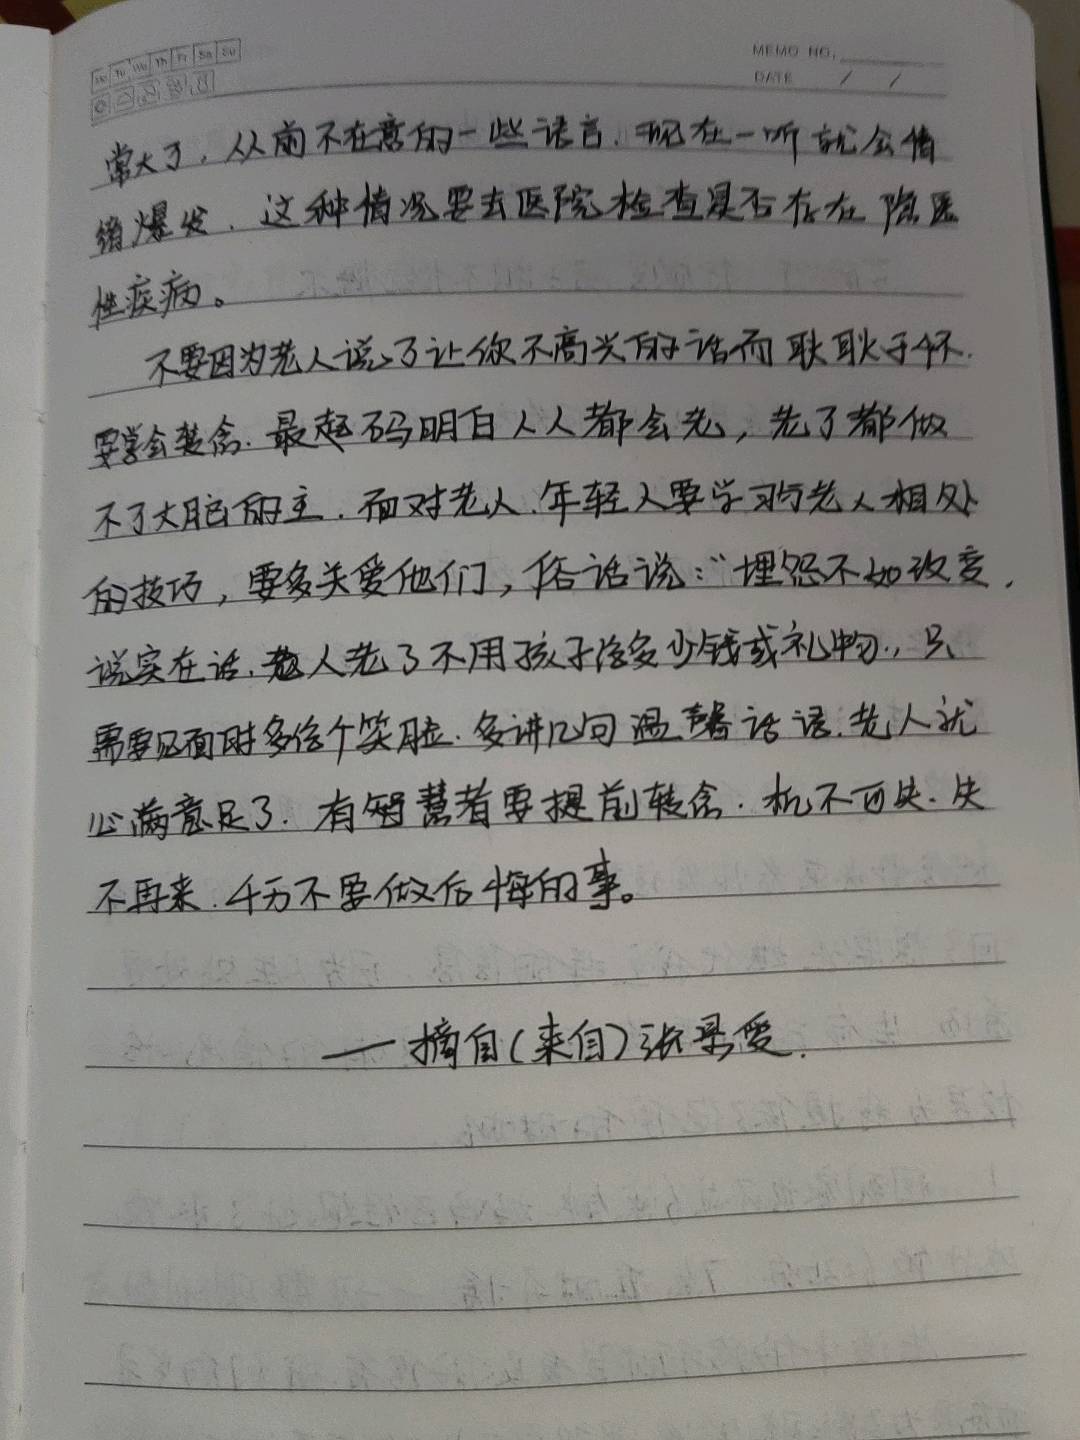 Mo Tu We Th Fr Sa Su
MEMO NO.
DATE / /
常大了，从前不在意的一些语言，现在一听就会情
绪爆发，这种情况要去医院检查是否存在隐匿
性疾病。
不要因为老人说了让你不高兴的话而耿耿于怀，
要学会转念，最起码明白人人都会老，老了都做
不了大脑的主，面对老人，年轻人要学习与老人相处
的技巧，要多关爱他们，俗话说：“埋怨不如改变，
说实在话，老人老了不用孩子给多少钱或礼物，只
需要见面时多给个笑脸，多讲几句温馨话语，老人就
心满意足了，有智慧者要提前转念，机不可失，失
不再来，千万不要做后悔的事。
——摘自(来自)张景爱，